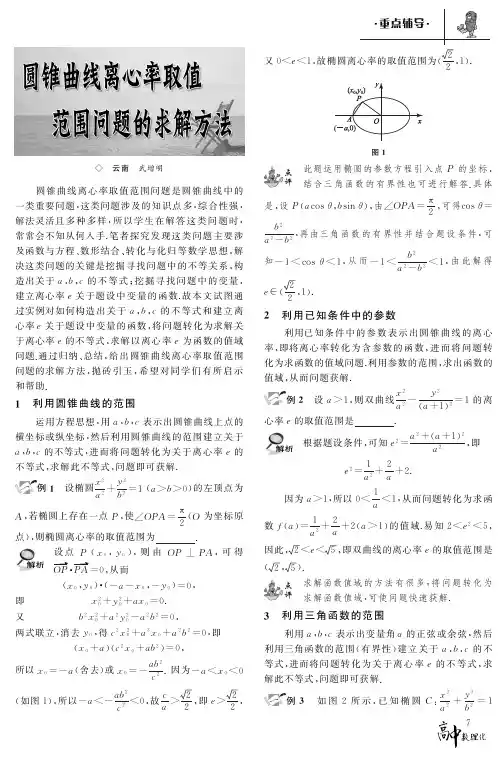 ·重点辅导·
圆锥曲线离心率取值
范围问题的求解方法
◇ 云南 武增明
圆锥曲线离心率取值范围问题是圆锥曲线中的
一类重要问题,这类问题涉及的知识点多,综合性强,
解法灵活且多种多样,所以学生在解答这类问题时,
常常会不知从何入手.笔者探究发现这类问题主要涉
及函数与方程、数形结合、转化与化归等数学思想,解
决这类问题的关键是挖掘寻找问题中的不等关系,构
造出关于a,b,c 的不等式;挖掘寻找问题中的变量,
建立离心率e 关于题设中变量的函数.故本文试图通
过实例对如何构造出关于a,b,c 的不等式和建立离
心率e 关于题设中变量的函数,将问题转化为求解关
于离心率e 的不等式,求解以离心率e 为函数的值域
问题.通过归纳、总结,给出圆锥曲线离心率取值范围
问题的求解方法,抛砖引玉,希望对同学们有所启示
和帮助.
1 利用圆锥曲线的范围
运用方程思想,用a,b,c 表示出圆锥曲线上点的
横坐标或纵坐标,然后利用圆锥曲线的范围建立关于
a,b,c 的不等式,进而将问题转化为关于离心率e 的
不等式,求解此不等式,问题即可获解.
例1 设椭圆x²/a²+y²/b²=1(a>b>0)的左顶点为
A,若椭圆上存在一点P,使∠OPA=π/2(O 为坐标原
点),则椭圆离心率的取值范围为________.
解析 设点P(x₀,y₀),则由OP⊥PA,可得
OP·PA=0,从而
(x₀,y₀)·(-a-x₀,-y₀)=0,
即 x₀²+y₀²+ax₀=0.
又 b²x₀²+a²y₀²-a²b²=0,
两式联立,消去y₀,得c²x₀²+a³x₀+a²b²=0,即
(x₀+a)(c²x₀+ab²)=0,
所以x₀=-a(舍去)或x₀=-ab²/c².因为-a<x₀<0
(如图1),所以-a<-ab²/c²<0,故c/a>√2/2,即e>√2/2,
又0<e<1,故椭圆离心率的取值范围为(√2/2,1).
(x₀,y₀)
P
y
A
(-a,0)
O
x
图1
点评 此题运用椭圆的参数方程引入点P 的坐标,
结合三角函数的有界性也可进行解答.具体
是,设P(acos θ,bsin θ),由∠OPA=π/2,可得cos θ=
b²/(a²-b²),再由三角函数的有界性并结合题设条件,可
知-1<cos θ<1,从而-1<b²/(a²-b²)<1,由此解得
e∈(√2/2,1).
2 利用已知条件中的参数
利用已知条件中的参数表示出圆锥曲线的离心
率,即将离心率转化为含参数的函数,进而将问题转
化为求函数的值域问题.利用参数的范围,求出函数的
值域,从而问题获解.
例2 设a>1,则双曲线x²/a²-y²/(a+1)²=1的离
心率e 的取值范围是________.
解析 根据题设条件,可知e²=(a²+(a+1)²)/a²,即
e²=1/a²+2/a+2.
因为a>1,所以0<1/a<1,从而问题转化为求函
数f(a)=1/a²+2/a+2(a>1)的值域.易知2<e²<5,
因此,√2<e<√5,即双曲线的离心率e 的取值范围是
(√2,√5).
点评 求解函数值域的方法有很多,将问题转化为
求解函数值域,可使问题快速获解.
3 利用三角函数的范围
利用a,b,c 表示出变量角α的正弦或余弦,然后
利用三角函数的范围(有界性)建立关于a,b,c 的不
等式,进而将问题转化为关于离心率e 的不等式,求
解此不等式,问题即可获解.
例3 如图2所示,已知椭圆C:x²/a²+y²/b²=1
7
高中数理化